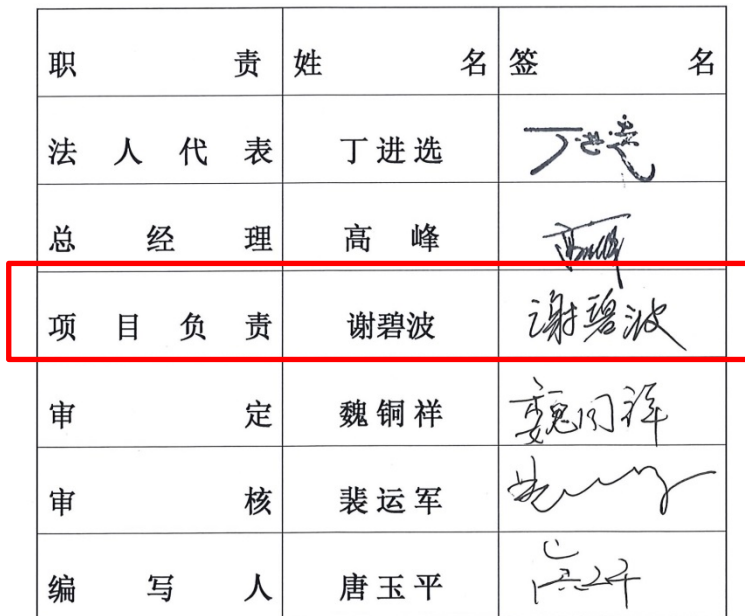 职 责 姓 名 签 名
法 人 代 表 丁进选 丁进选
总 经 理 高 峰 高峰
项 目 负 责 谢碧波 谢碧波
审 定 魏铜祥 魏同祥
审 核 裴运军
编 写 人 唐玉平